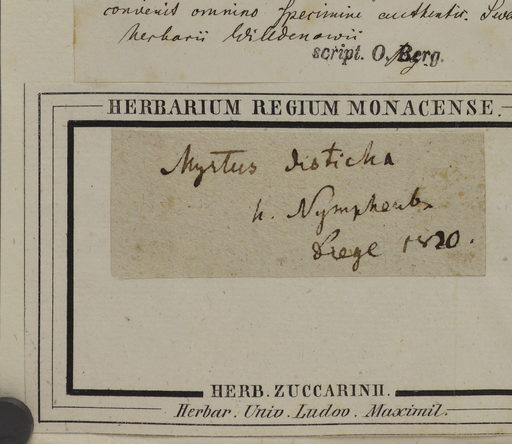 convenit omnino specimini authentic. Swa
herbarii Willdenowii
script. O. Berg.
HERBARIUM REGIUM MONACENSE.
Myrtus disticha
h. Nymphenb.
1820.
HERB. ZUCCARINII.
Herbar. Univ. Ludov. Maximil.